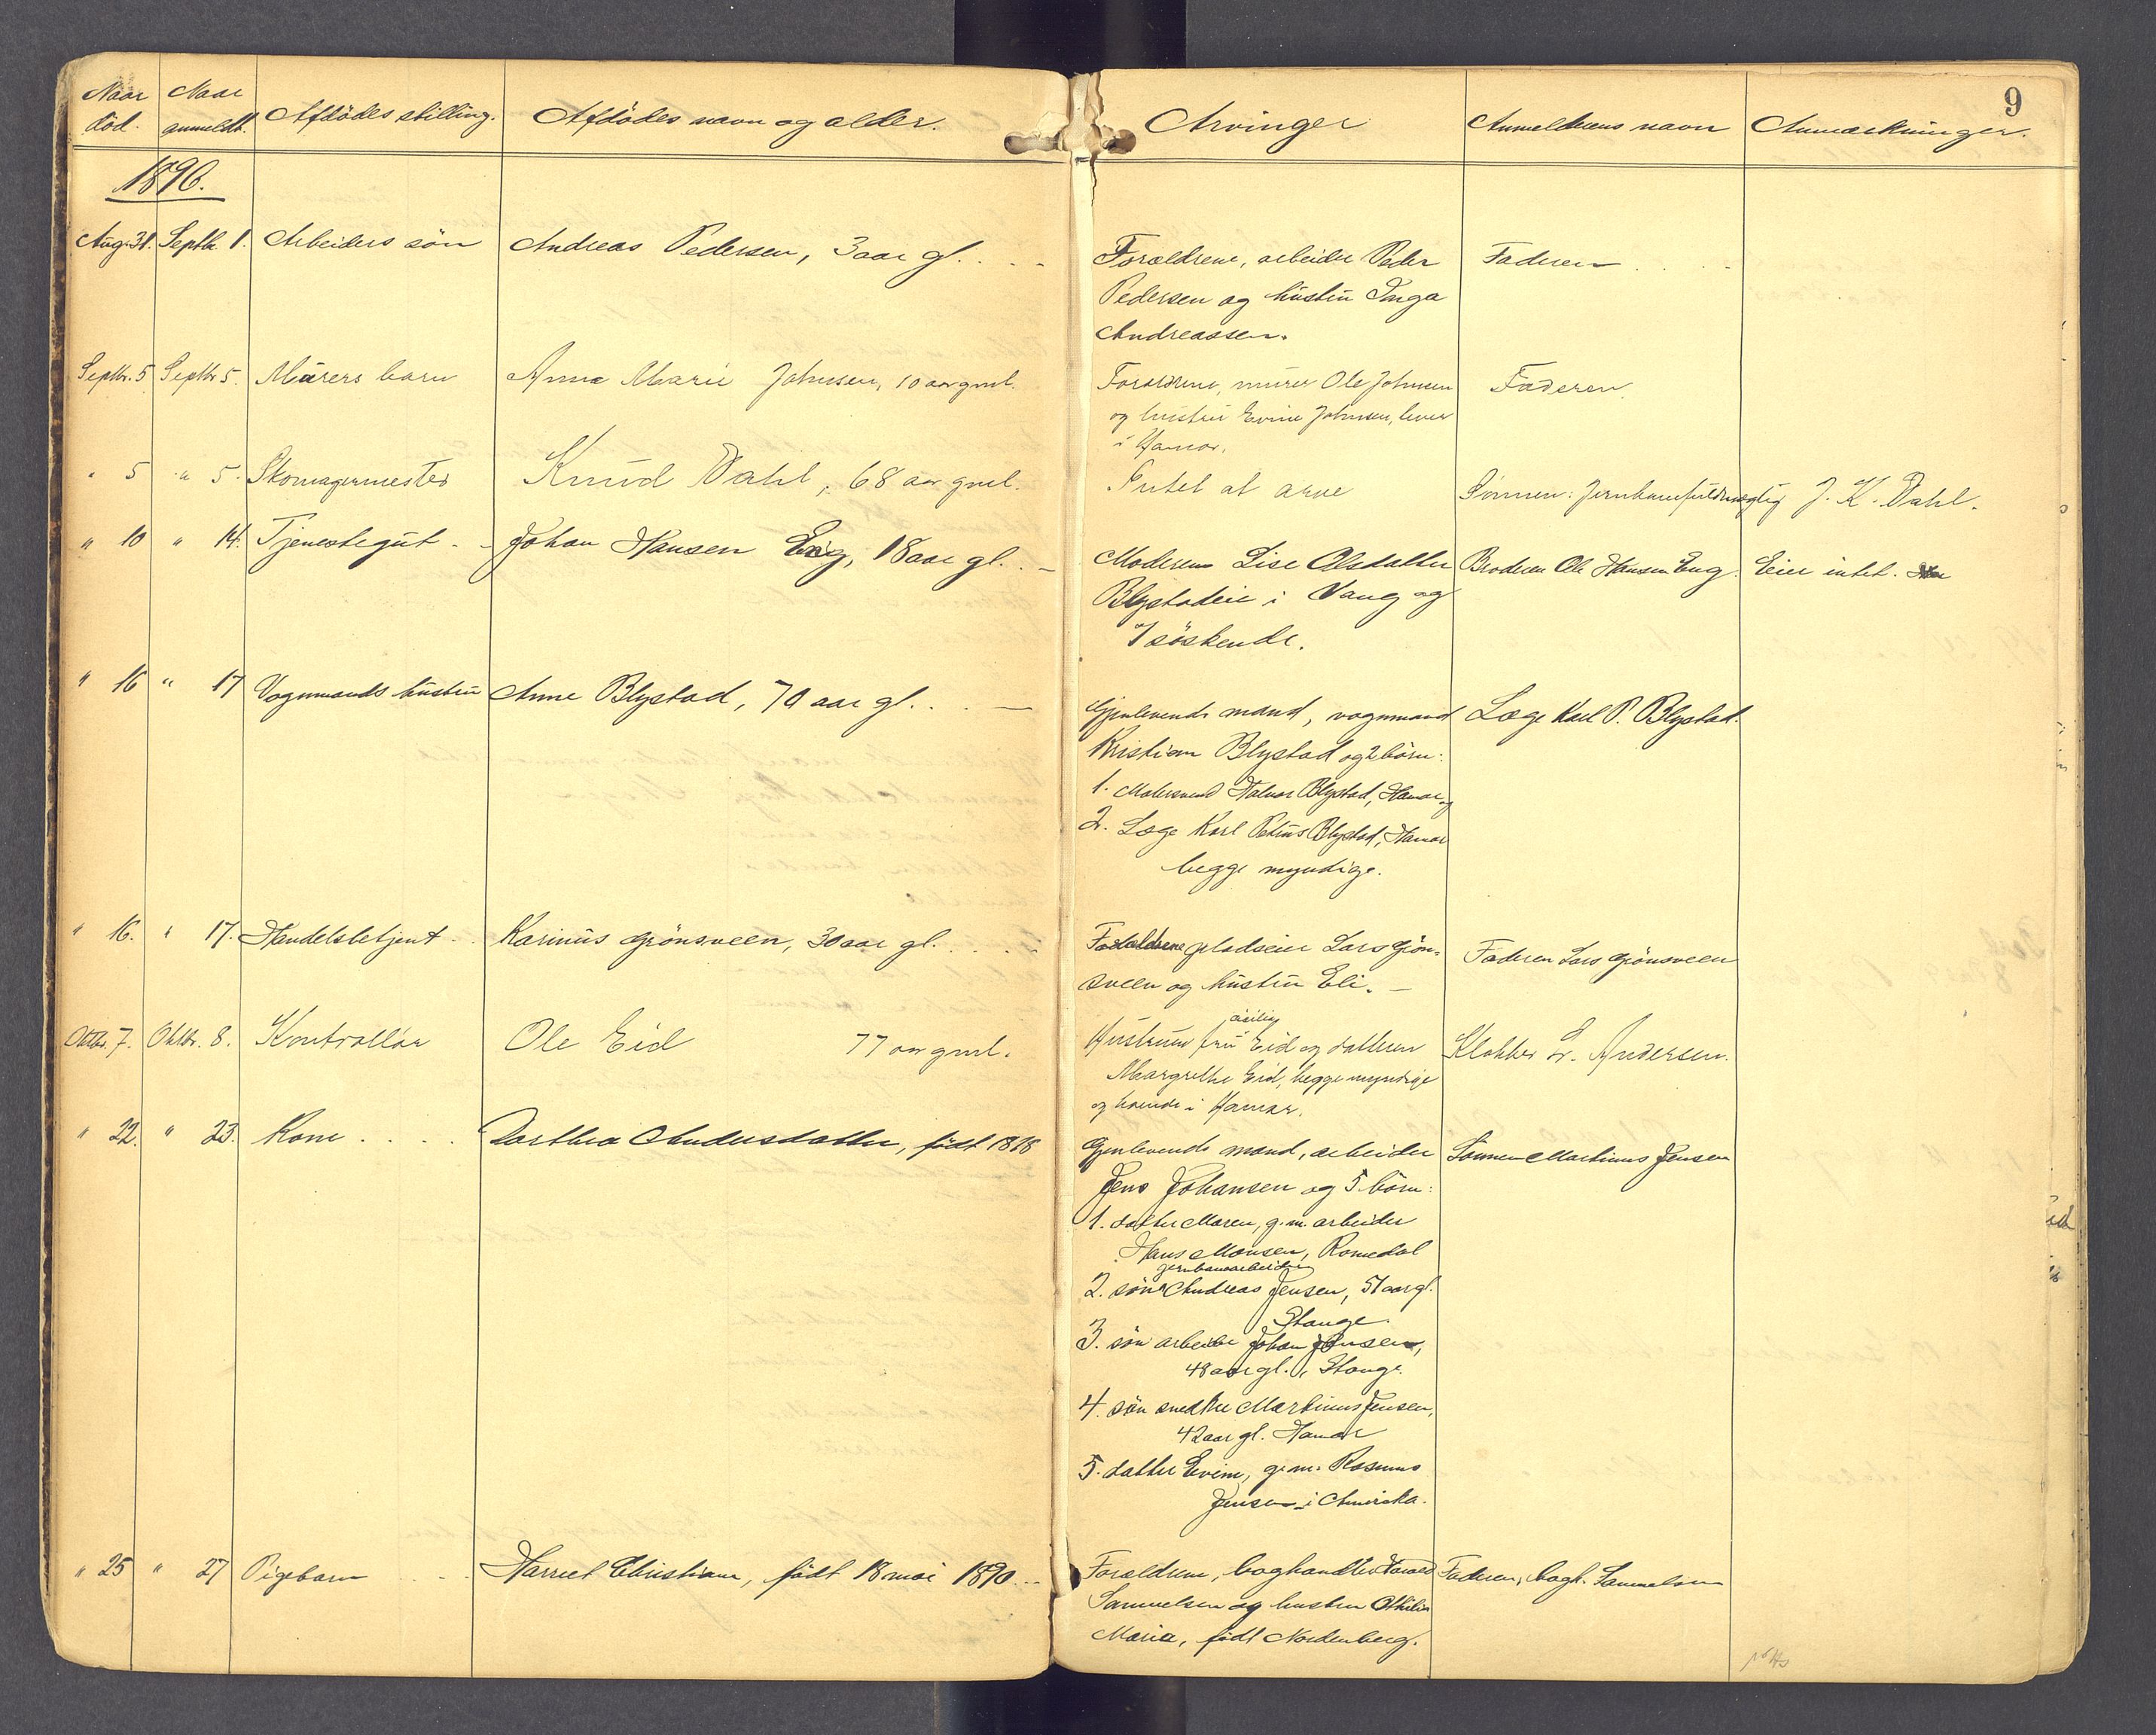 9
Naar død. Naar anmeldt. Afdødes stilling. Afdødes navn og alder. Arvinger Anmelderens navn Anmærkninger.
1890.
Aug. 31. Septbr. 1. Arbeiders søn Andreas Pedersen, 3 aar gl. Forældrene, arbeider Peder Faderen
Pedersen og hustru Inga
Andreassen.
Septbr. 5 Septbr 5. Murers barn Anne Marie Johnsen, 10 aar gml. Forældrene, murer Ole Johnsen Faderen.
og hustru Evine Johnsen, lever
i Hamar.
" 5 " 5. Skomagermester Knud Dahl, 68 aar gml. Intet at arve Sønnen: Jernbanefuldmægtig J. K. Dahl.
" 10 " 14. Tjenestegut Johan Hansen Eng, 18 aar gl. Moderen Lise Olsdatter Broderen Ole Hansen Eng. Eier intet.
Blystadeie i Vang og
7 söskende.
" 16 " 17 Vognmands hustru Anne Blystad, 70 aar gl. Gjenlevende mand, vognmand Læge Karl P. Blystad.
Kristian Blystad og 2 börn:
1. Malersvend Halvor Blystad, Hamar og
2. Læge Karl Petrus Blystad, Hamar
begge myndige.
" 16. " 17. Handelsbetjent Karinus Grönsveen, 30 aar gl. Forældrene pladseier Lars Grön- Faderen Lars Grönsveen
sveen og hustru Eli.
Oktbr. 7. Oktbr. 8. Kontrollør Ole Eid 77 aar gml. Hustruen fru Eid og datteren Klokker Andersen.
Margrethe Eid, begge myndige
og boende i Hamar.
" 22. " 23. Kone Dorthea Andersdatter, födt 1818 Gjenlevende mand, arbeider Sönnen Martinus Jensen
Jens Johansen og 5 börn:
1. datter Maren, g. m. arbeider
Hans Monsen, Romedal
jernbanearbeider
2. sön Andreas Jensen, 51 aar gl.
Stange.
3. sön arbeider Johan Jensen,
48 aar gl., Stange.
4. sön snedker Martinus Jensen,
42 aar gl. Hamar
5. datter Evine, g. m. Rasmus
Jensen i Amerika.
" 25 " 27 Pigebarn Harriet Christiane, födt 18 mai 1890. Forældrene, boghandler Harald Faderen, bogh. Samuelsen
Samuelsen og hustru Othilie
Maria, födt Nordenberg.